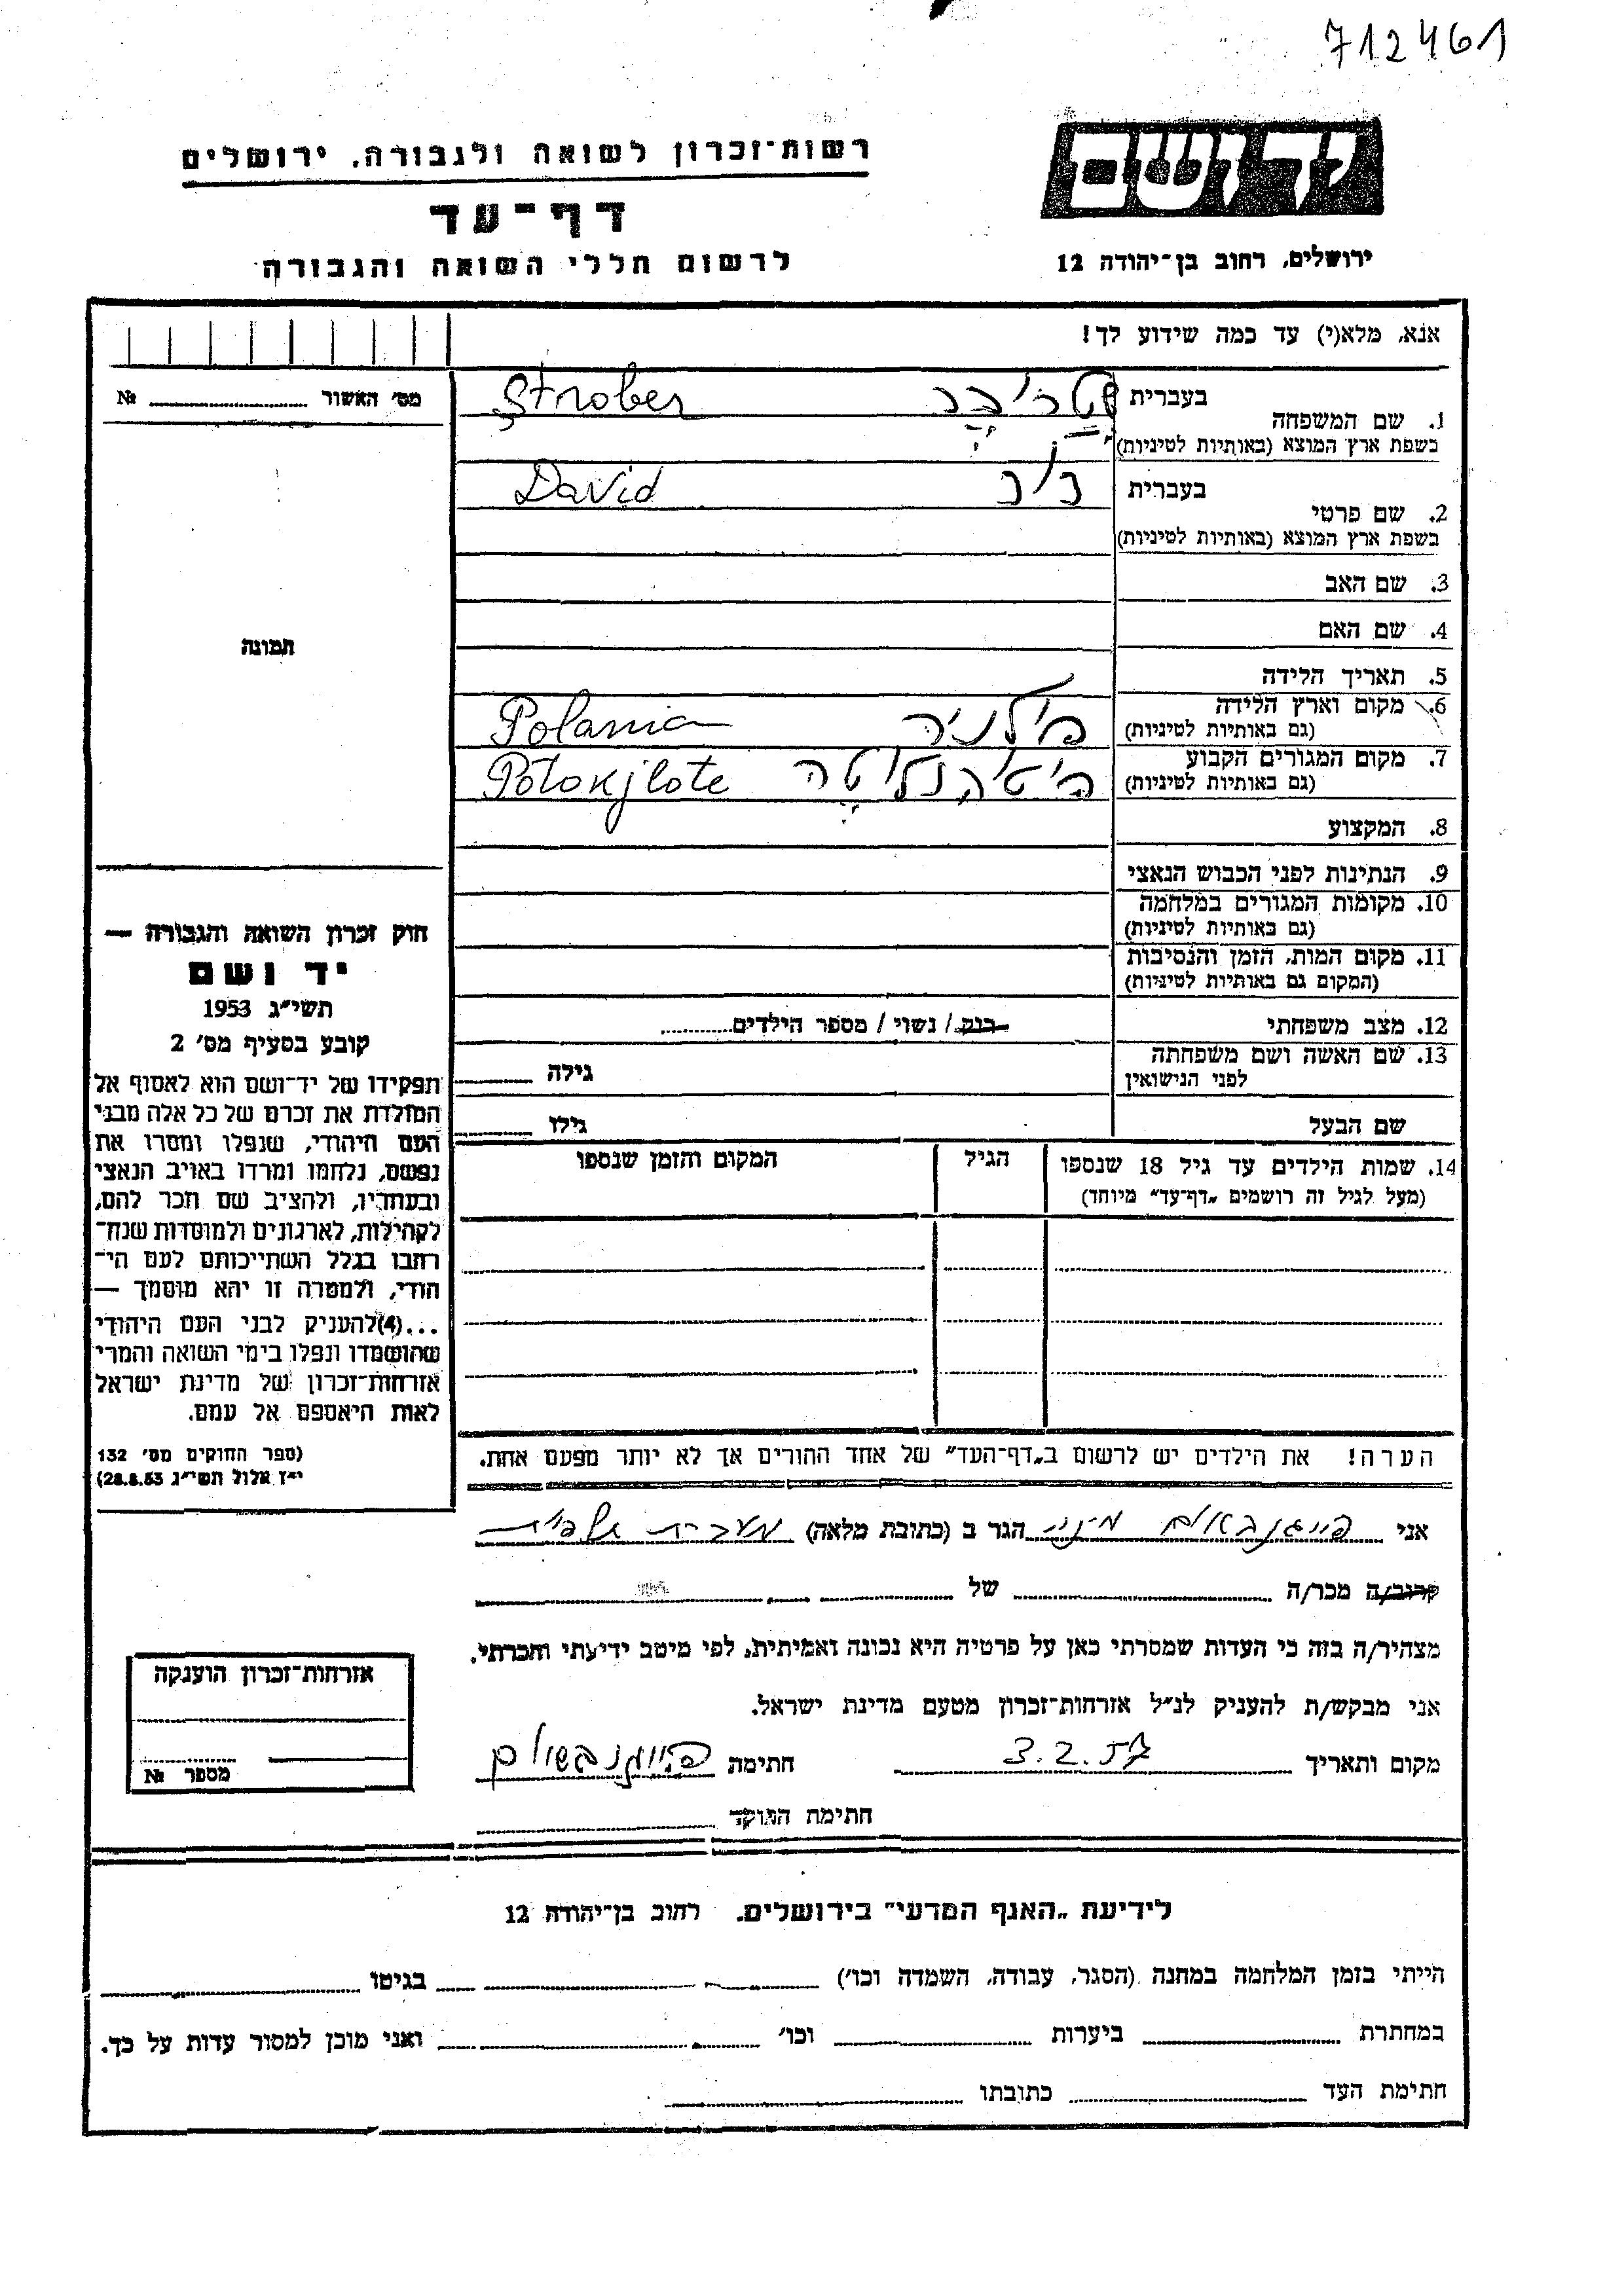 712461
יד ושם
רשות־זכרון לשואה ולגבורה, ירושלים
דף־עד
לרשום חללי השואה והגבורה
ירושלים, רחוב בן־יהודה 12
אנא, מלא(י) עד כמה שידוע לך!
מס׳ האשור № 
1. שם המשפחה
בעברית
Strober
בשפת ארץ המוצא (באותיות לטיניות)
2. שם פרטי
בעברית
David
בשפת ארץ המוצא (באותיות לטיניות)
3. שם האב
4. שם האם
תמונה
5. תאריך הלידה
6. מקום וארץ הלידה
(גם באותיות לטיניות)
Polania
7. מקום המגורים הקבוע
(גם באותיות לטיניות)
Potokjlote
8. המקצוע
9. הנתינות לפני הכבוש הנאצי
10. מקומות המגורים במלחמה
(גם באותיות לטיניות)
11. מקום המות, הזמן והנסיבות
(המקום גם באותיות לטיניות)
12. מצב משפחתי רוק / נשוי / מספר הילדים
13. שם האשה ושם משפחתה
לפני הנישואין
גילה
שם הבעל גילו
14. שמות הילדים עד גיל 18 שנספו הגיל המקום והזמן שנספו
(מעל לגיל זה רושמים „דף־עד״ מיוחד)
הערה! את הילדים יש לרשום ב„דף־העד״ של אחד ההורים אך לא יותר מפעם אחת.
חוק זכרון השואה והגבורה —
יד ושם
תשי״ג 1953
קובע בסעיף מס׳ 2
תפקידו של יד־ושם הוא לאסוף אל
המולדת את זכרם של כל אלה מבני
העם היהודי, שנפלו ומסרו את
נפשם, נלחמו ומרדו באויב הנאצי
ובעוזריו, ולהציב שם וזכר להם,
לקהילות, לארגונים ולמוסדות שנח־
רבו בגלל השתייכותם לעם הי־
הודי, ולמטרה זו יהא מוסמך —
...(4)להעניק לבני העם היהודי
שהושמדו ונפלו בימי השואה והמרי
אזרחות־זכרון של מדינת ישראל
לאות היאספם אל עמם.
(ספר החוקים מס׳ 132
י״ז אלול תשי״ג 28.8.53)
אני פייגנבאום הגר ב (כתובת מלאה) מעברת
קרוב/ה מכר/ה של
מצהיר/ה בזה כי העדות שמסרתי כאן על פרטיה היא נכונה ואמיתית, לפי מיטב ידיעתי והכרתי.
אני מבקש/ת להעניק לנ״ל אזרחות־זכרון מטעם מדינת ישראל.
מקום ותאריך 3.2.57 חתימה פייגנבאום
חתימת הפוקד
אזרחות־זכרון הוענקה
מספר №
לידיעת „האגף המדעי״ בירושלים, רחוב בן־יהודה 12
הייתי בזמן המלחמה במחנה (הסגר, עבודה, השמדה וכו׳) בגיטו
במחתרת ביערות וכו׳ ואני מוכן למסור עדות על כך.
חתימת העד כתובתו